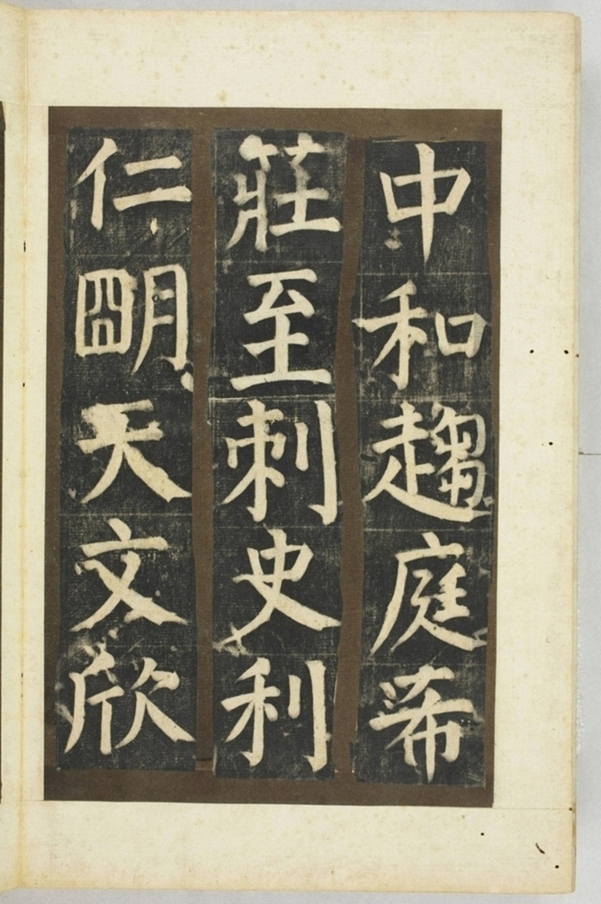 中和趨庭希
莊至刺史利
仁朙天文欣